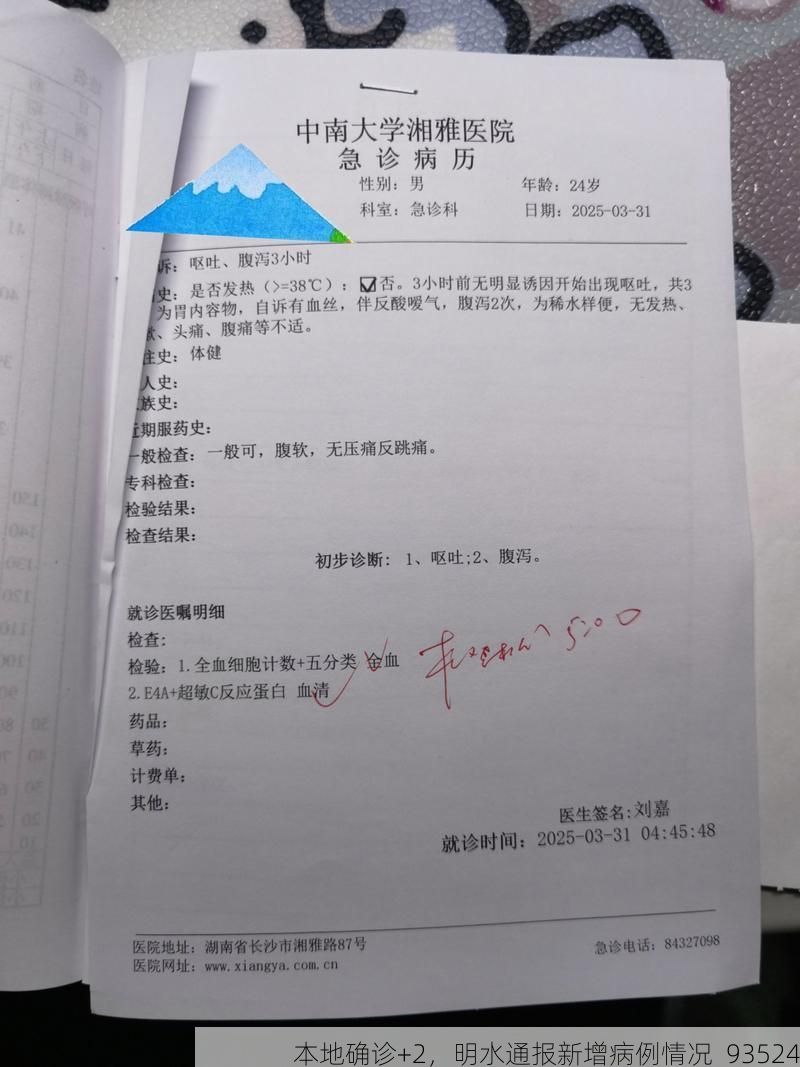 中南大学湘雅医院
急诊病历
性别：男 年龄：24岁
科室：急诊科 日期：2025-03-31
诉：呕吐、腹泻3小时
史：是否发热（>=38℃）：☑否。3小时前无明显诱因开始出现呕吐，共3
为胃内容物，自诉有血丝，伴反酸嗳气，腹泻2次，为稀水样便，无发热、
、头痛、腹痛等不适。
往史：体健
人史：
族史：
近期服药史：
一般检查：一般可，腹软，无压痛反跳痛。
专科检查：
检验结果：
检查结果：
初步诊断：1、呕吐;2、腹泻。
就诊医嘱明细
检查：
检验：1.全血细胞计数+五分类 全血
5:00
2.E4A+超敏C反应蛋白 血清
药品：
草药：
计费单：
其他：
医生签名:刘嘉
就诊时间：2025-03-31 04:45:48
医院地址：湖南省长沙市湘雅路87号 急诊电话：84327098
医院网址：www.xiangya.com.cn
本地确诊+2，明水通报新增病例情况 93524